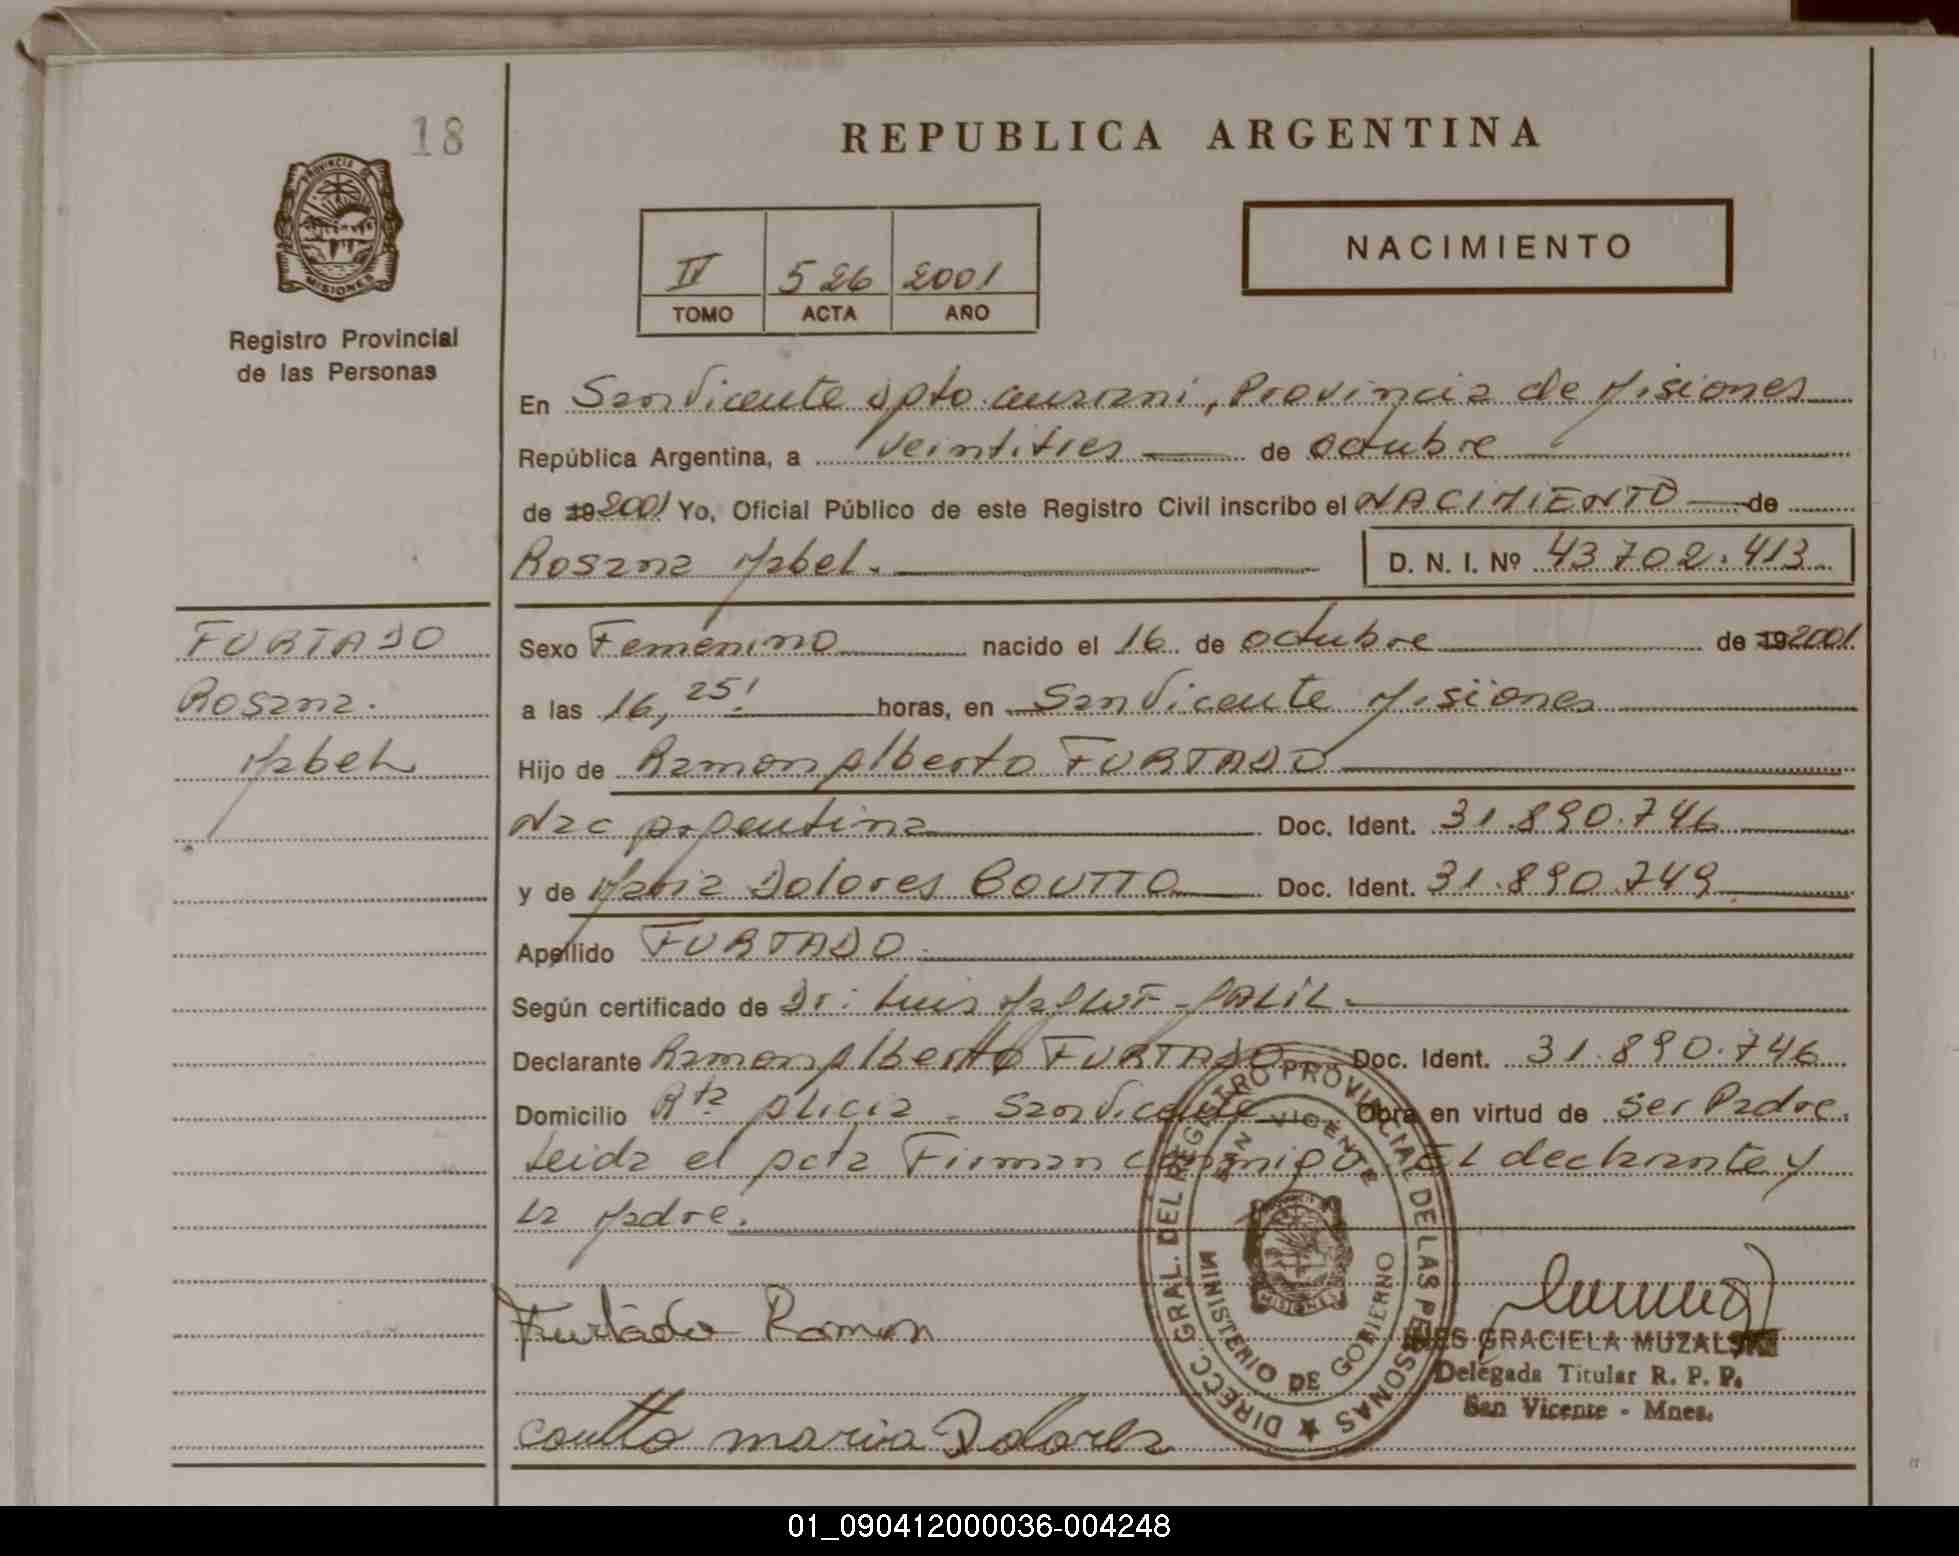 18
REPUBLICA ARGENTINA
PROVINCIA DE
MISIONES
Registro Provincial
de las Personas
IV 526 2001
TOMO ACTA AÑO
NACIMIENTO
En San Vicente Dpto. Guarani, Provincia de Misiones
República Argentina, a veintitres de octubre
de 19 2001 Yo, Oficial Público de este Registro Civil inscribo el NACIMIENTO de
Rosana Mabel. D. N. I. Nº 43.702.413
FURTADO
Rosana.
Mabel
Sexo Femenino nacido el 16 de octubre de 19 2001
a las 16, 25' horas, en San Vicente Misiones
Hijo de Ramon Alberto FURTADO
Nac Argentina Doc. Ident. 31.890.746
y de Maria Dolores COUTTO Doc. Ident. 31.890.749
Apellido FURTADO
Según certificado de Dr: Luis
Declarante Ramon Alberto FURTADO Doc. Ident. 31.890.746
Domicilio Rta Alicia - San Vicente Obra en virtud de ser Padre.
Leida el Acta Firman conmigo EL declarante y
la Madre.
Furtado Ramon
coutto maria Dolores
DIRECC. GRAL. DEL REGISTRO PROVINCIAL DE LAS PERSONAS
SAN VICENTE
MISIONES
MINISTERIO DE GOBIERNO
INES GRACIELA MUZALSKI
Delegada Titular R. P. P.
San Vicente - Mnes.
01_090412000036-004248